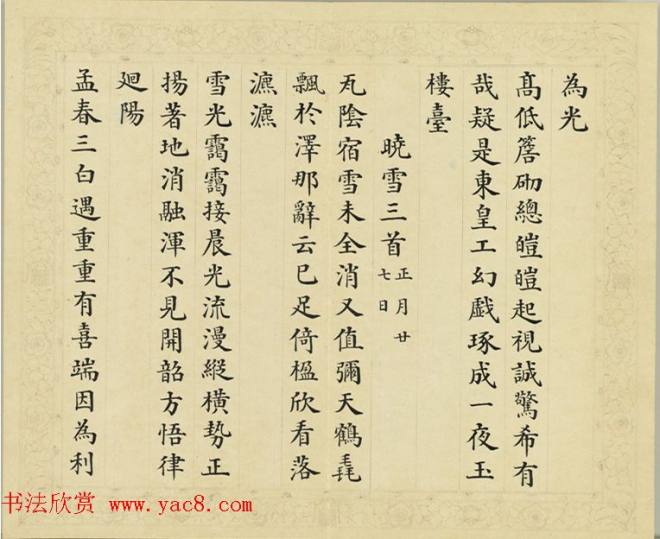 為光
高低簷砌總皚皚起視誠驚希有
哉疑是東皇工幻戲琢成一夜玉
樓臺
曉雪三首 正月廿七日
瓦陰宿雪未全消又值彌天鶴毳
飄於澤那辭云已足倚楹欣看落
瀌瀌
雪光靄靄接晨光流漫縱橫勢正
揚著地消融渾不見開韶方悟律
廻陽
孟春三白遇重重有喜端因為利
书法欣赏 www.yac8.com